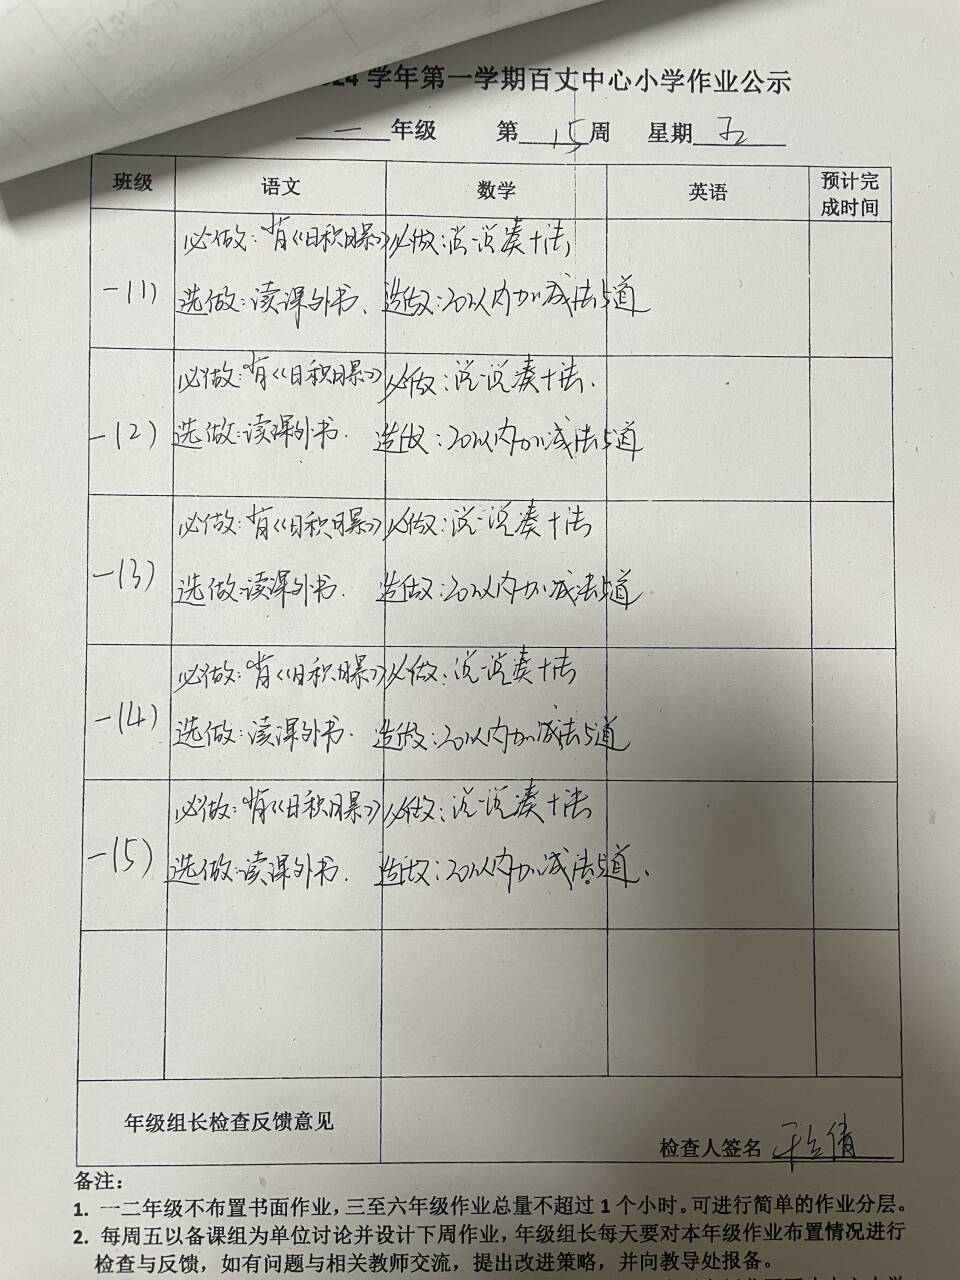 24 学年第一学期百丈中心小学作业公示
一 年级 第 15 周 星期 五
班级 语文 数学 英语 预计完成时间
一(1) 必做:背《日积月累》 必做:说一说凑十法
选做:读课外书. 选做:20以内加减法5道
一(2) 必做:背《日积月累》 必做:说一说凑十法.
选做:读课外书. 选做:20以内加减法5道
一(3) 必做:背《日积月累》 必做:说一说凑十法
选做:读课外书. 选做:20以内加减法5道
一(4) 必做:背《日积月累》 必做:说一说凑十法
选做:读课外书. 选做:20以内加减法5道
一(5) 必做:背《日积月累》 必做:说一说凑十法
选做:读课外书. 选做:20以内加减法5道.
年级组长检查反馈意见
检查人签名
备注:
1. 一二年级不布置书面作业,三至六年级作业总量不超过 1 个小时。可进行简单的作业分层。
2. 每周五以备课组为单位讨论并设计下周作业,年级组长每天要对本年级作业布置情况进行
检查与反馈,如有问题与相关教师交流,提出改进策略,并向教导处报备。